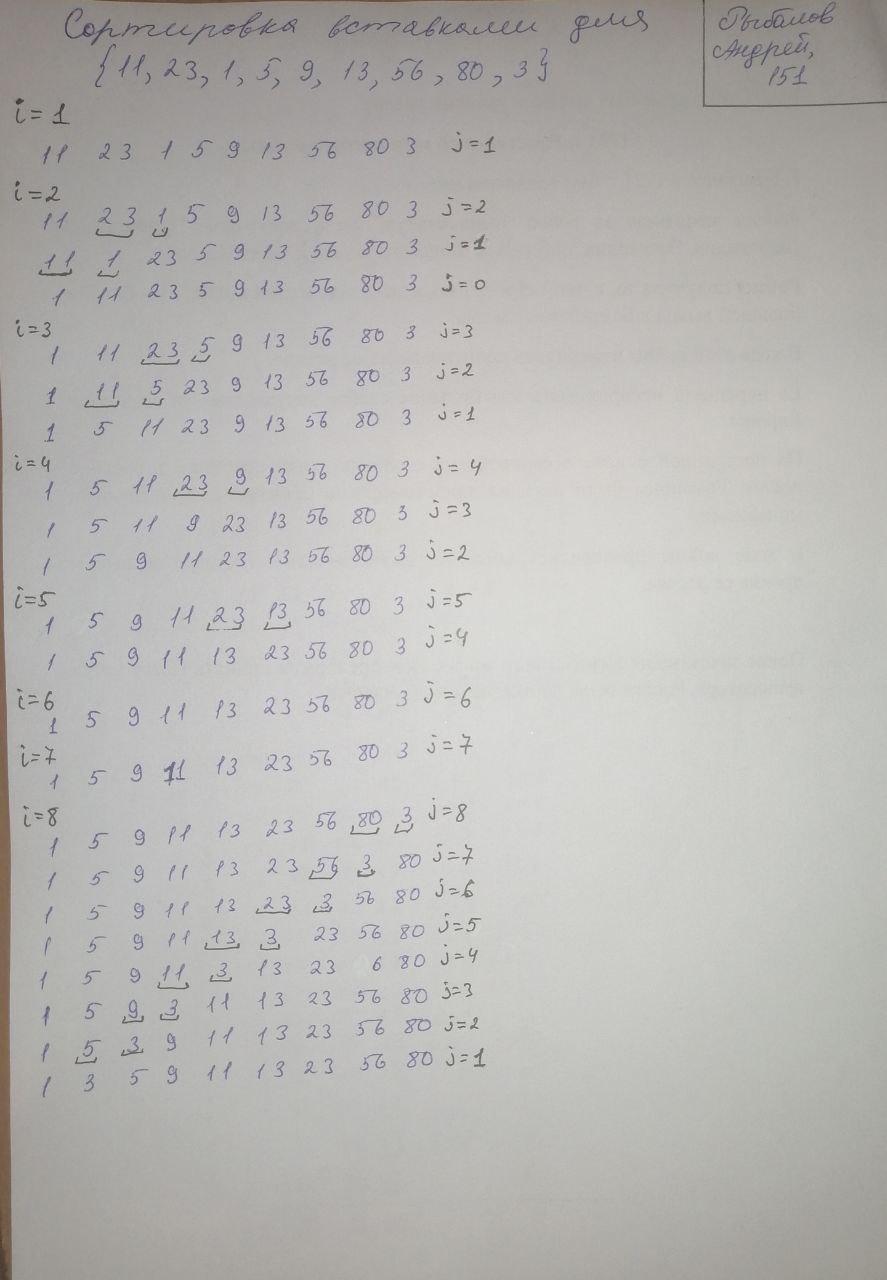 Сортировка вставками для
{11, 23, 1, 5, 9, 13, 56, 80, 3}
Рыбалов
Андрей,
151
i=1
11 23 1 5 9 13 56 80 3 j=1
i=2
11 23 1 5 9 13 56 80 3 j=2
11 1 23 5 9 13 56 80 3 j=1
1 11 23 5 9 13 56 80 3 j=0
i=3
1 11 23 5 9 13 56 80 3 j=3
1 11 5 23 9 13 56 80 3 j=2
1 5 11 23 9 13 56 80 3 j=1
i=4
1 5 11 23 9 13 56 80 3 j=4
1 5 11 9 23 13 56 80 3 j=3
1 5 9 11 23 13 56 80 3 j=2
i=5
1 5 9 11 23 13 56 80 3 j=5
1 5 9 11 13 23 56 80 3 j=4
i=6
1 5 9 11 13 23 56 80 3 j=6
i=7
1 5 9 11 13 23 56 80 3 j=7
i=8
1 5 9 11 13 23 56 80 3 j=8
1 5 9 11 13 23 56 3 80 j=7
1 5 9 11 13 23 3 56 80 j=6
1 5 9 11 13 3 23 56 80 j=5
1 5 9 11 3 13 23 6 80 j=4
1 5 9 3 11 13 23 56 80 j=3
1 5 3 9 11 13 23 56 80 j=2
1 3 5 9 11 13 23 56 80 j=1